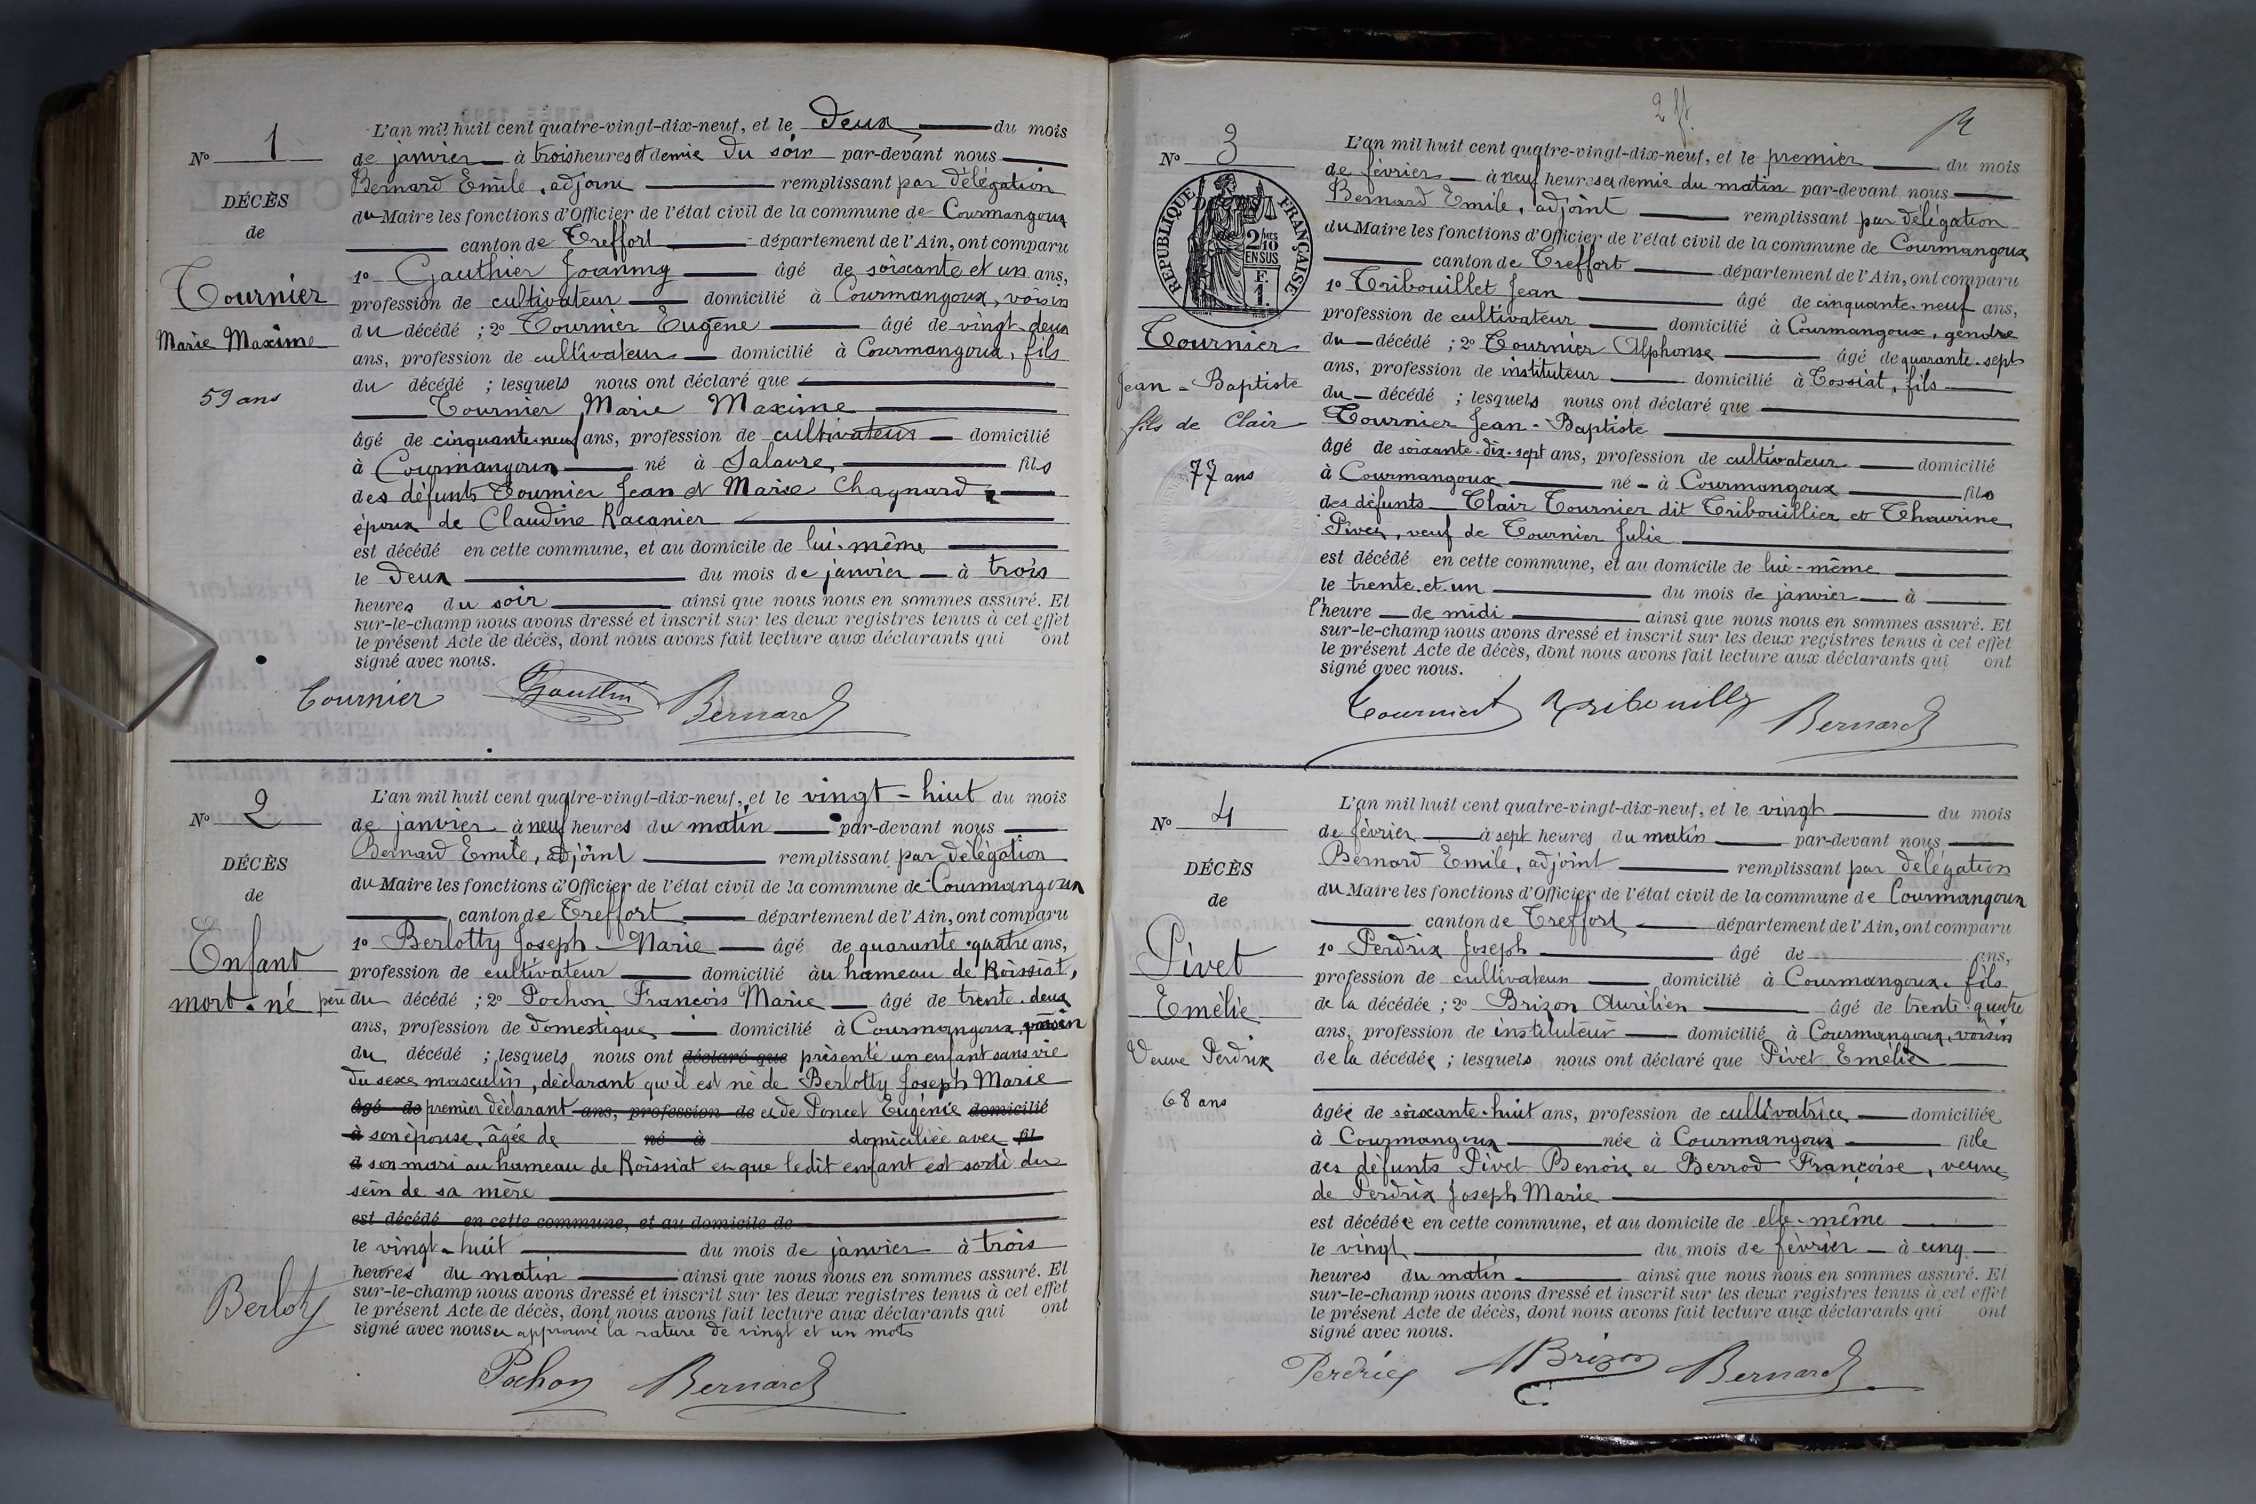 N° 1
DÉCÈS
de
Tournier
Marie Maxime
59 ans
L'an mil huit cent quatre-vingt-dix-neuf, et le deux du mois
de janvier à trois heures et demie du soir par-devant nous
Bernard Emile, adjoint remplissant par délégation
du Maire les fonctions d'Officier de l'état civil de la commune de Courmangoux
canton de Treffort département de l'Ain, ont comparu
1° Gauthier Joanny âgé de soixante et un ans,
profession de cultivateur domicilié à Courmangoux, voisin
du décédé ; 2° Tournier Eugène âgé de vingt-deux
ans, profession de cultivateur domicilié à Courmangoux, fils
du décédé ; lesquels nous ont déclaré que
Tournier Marie Maxime
âgé de cinquante-neuf ans, profession de cultivateur domicilié
à Courmangoux né à Salavre, fils
des défunts Tournier Jean et Marie Chagnard,
époux de Claudine Racanier
est décédé en cette commune, et au domicile de lui-même
le deux du mois de janvier à trois
heures du soir ainsi que nous nous en sommes assuré. Et
sur-le-champ nous avons dressé et inscrit sur les deux registres tenus à cet effet
le présent Acte de décès, dont nous avons fait lecture aux déclarants qui ont
signé avec nous.
Tournier Gauthier Bernard
N° 2
DÉCÈS
de
Enfant
mort-né
L'an mil huit cent quatre-vingt-dix-neuf, et le vingt-huit du mois
de janvier à neuf heures du matin par-devant nous
Bernard Emile, adjoint remplissant par délégation
du Maire les fonctions d'Officier de l'état civil de la commune de Courmangoux
canton de Treffort département de l'Ain, ont comparu
1° Berlotty Joseph-Marie âgé de quarante-quatre ans,
profession de cultivateur domicilié au hameau de Roissiat,
père du décédé ; 2° Pochon François Marie âgé de trente-deux
ans, profession de domestique domicilié à Courmangoux, voisin
du décédé ; lesquels nous ont déclaré que présenté un enfant sans vie
du sexe masculin, déclarant qu'il est né de Berlotty Joseph Marie
âgé de premier déclarant ans, profession de et de Poncet Eugénie domicilié
à son épouse, âgée de né à domiciliée avec fil
d son mari au hameau de Roissiat et que ledit enfant est sorti du
sein de sa mère
est décédé en cette commune, et au domicile de
le vingt-huit du mois de janvier à trois
heures du matin ainsi que nous nous en sommes assuré. Et
sur-le-champ nous avons dressé et inscrit sur les deux registres tenus à cet effet
le présent Acte de décès, dont nous avons fait lecture aux déclarants qui ont
signé avec nous et approuvé la rature de vingt et un mots
Berloty
Pochon Bernard
2 ft
N° 3
RÉPUBLIQUE FRANÇAISE
2/10 MES
EN SUS
F.
1.
Tournier
Jean-Baptiste
fils de Clair
77 ans
L'an mil huit cent quatre-vingt-dix-neuf, et le premier du mois
de février à neuf heures et demie du matin par-devant nous
Bernard Emile, adjoint remplissant par délégation
du Maire les fonctions d'Officier de l'état civil de la commune de Courmangoux
canton de Treffort département de l'Ain, ont comparu
1° Tribouillet Jean âgé de cinquante-neuf ans,
profession de cultivateur domicilié à Courmangoux, gendre
du décédé ; 2° Tournier Alphonse âgé de quarante-sept
ans, profession de instituteur domicilié à Tossiat, fils
du décédé ; lesquels nous ont déclaré que
Tournier Jean-Baptiste
âgé de soixante-dix-sept ans, profession de cultivateur domicilié
à Courmangoux né à Courmangoux fils
des défunts Clair Tournier dit Tribouillier et Thaurine
Pivet, veuf de Tournier Julie
est décédé en cette commune, et au domicile de lui-même
le trente-et-un du mois de janvier à
l'heure de midi ainsi que nous nous en sommes assuré. Et
sur-le-champ nous avons dressé et inscrit sur les deux registres tenus à cet effet
le présent Acte de décès, dont nous avons fait lecture aux déclarants qui ont
signé avec nous.
Tournier Tribouillet Bernard
N° 4
DÉCÈS
de
Pivet
Emélie
Veuve Perdrix
68 ans
L'an mil huit cent quatre-vingt-dix-neuf, et le vingt du mois
de février à sept heures du matin par-devant nous
Bernard Emile, adjoint remplissant par délégation
du Maire les fonctions d'Officier de l'état civil de la commune de Courmangoux
canton de Treffort département de l'Ain, ont comparu
1° Perdrix Joseph âgé de ans,
profession de cultivateur domicilié à Courmangoux, fils
de la décédée ; 2° Brizon Aurélien âgé de trente-quatre
ans, profession de instituteur domicilié à Courmangoux, voisin
de la décédée ; lesquels nous ont déclaré que Pivet Emélie
âgée de soixante-huit ans, profession de cultivatrice domiciliée
à Courmangoux née à Courmangoux fille
des défunts Pivet Benoit et Berrod Françoise, veuve
de Perdrix Joseph Marie
est décédée en cette commune, et au domicile de elle-même
le vingt du mois de février à cinq
heures du matin ainsi que nous nous en sommes assuré. Et
sur-le-champ nous avons dressé et inscrit sur les deux registres tenus à cet effet
le présent Acte de décès, dont nous avons fait lecture aux déclarants qui ont
signé avec nous.
Perdrix ABrizon Bernard